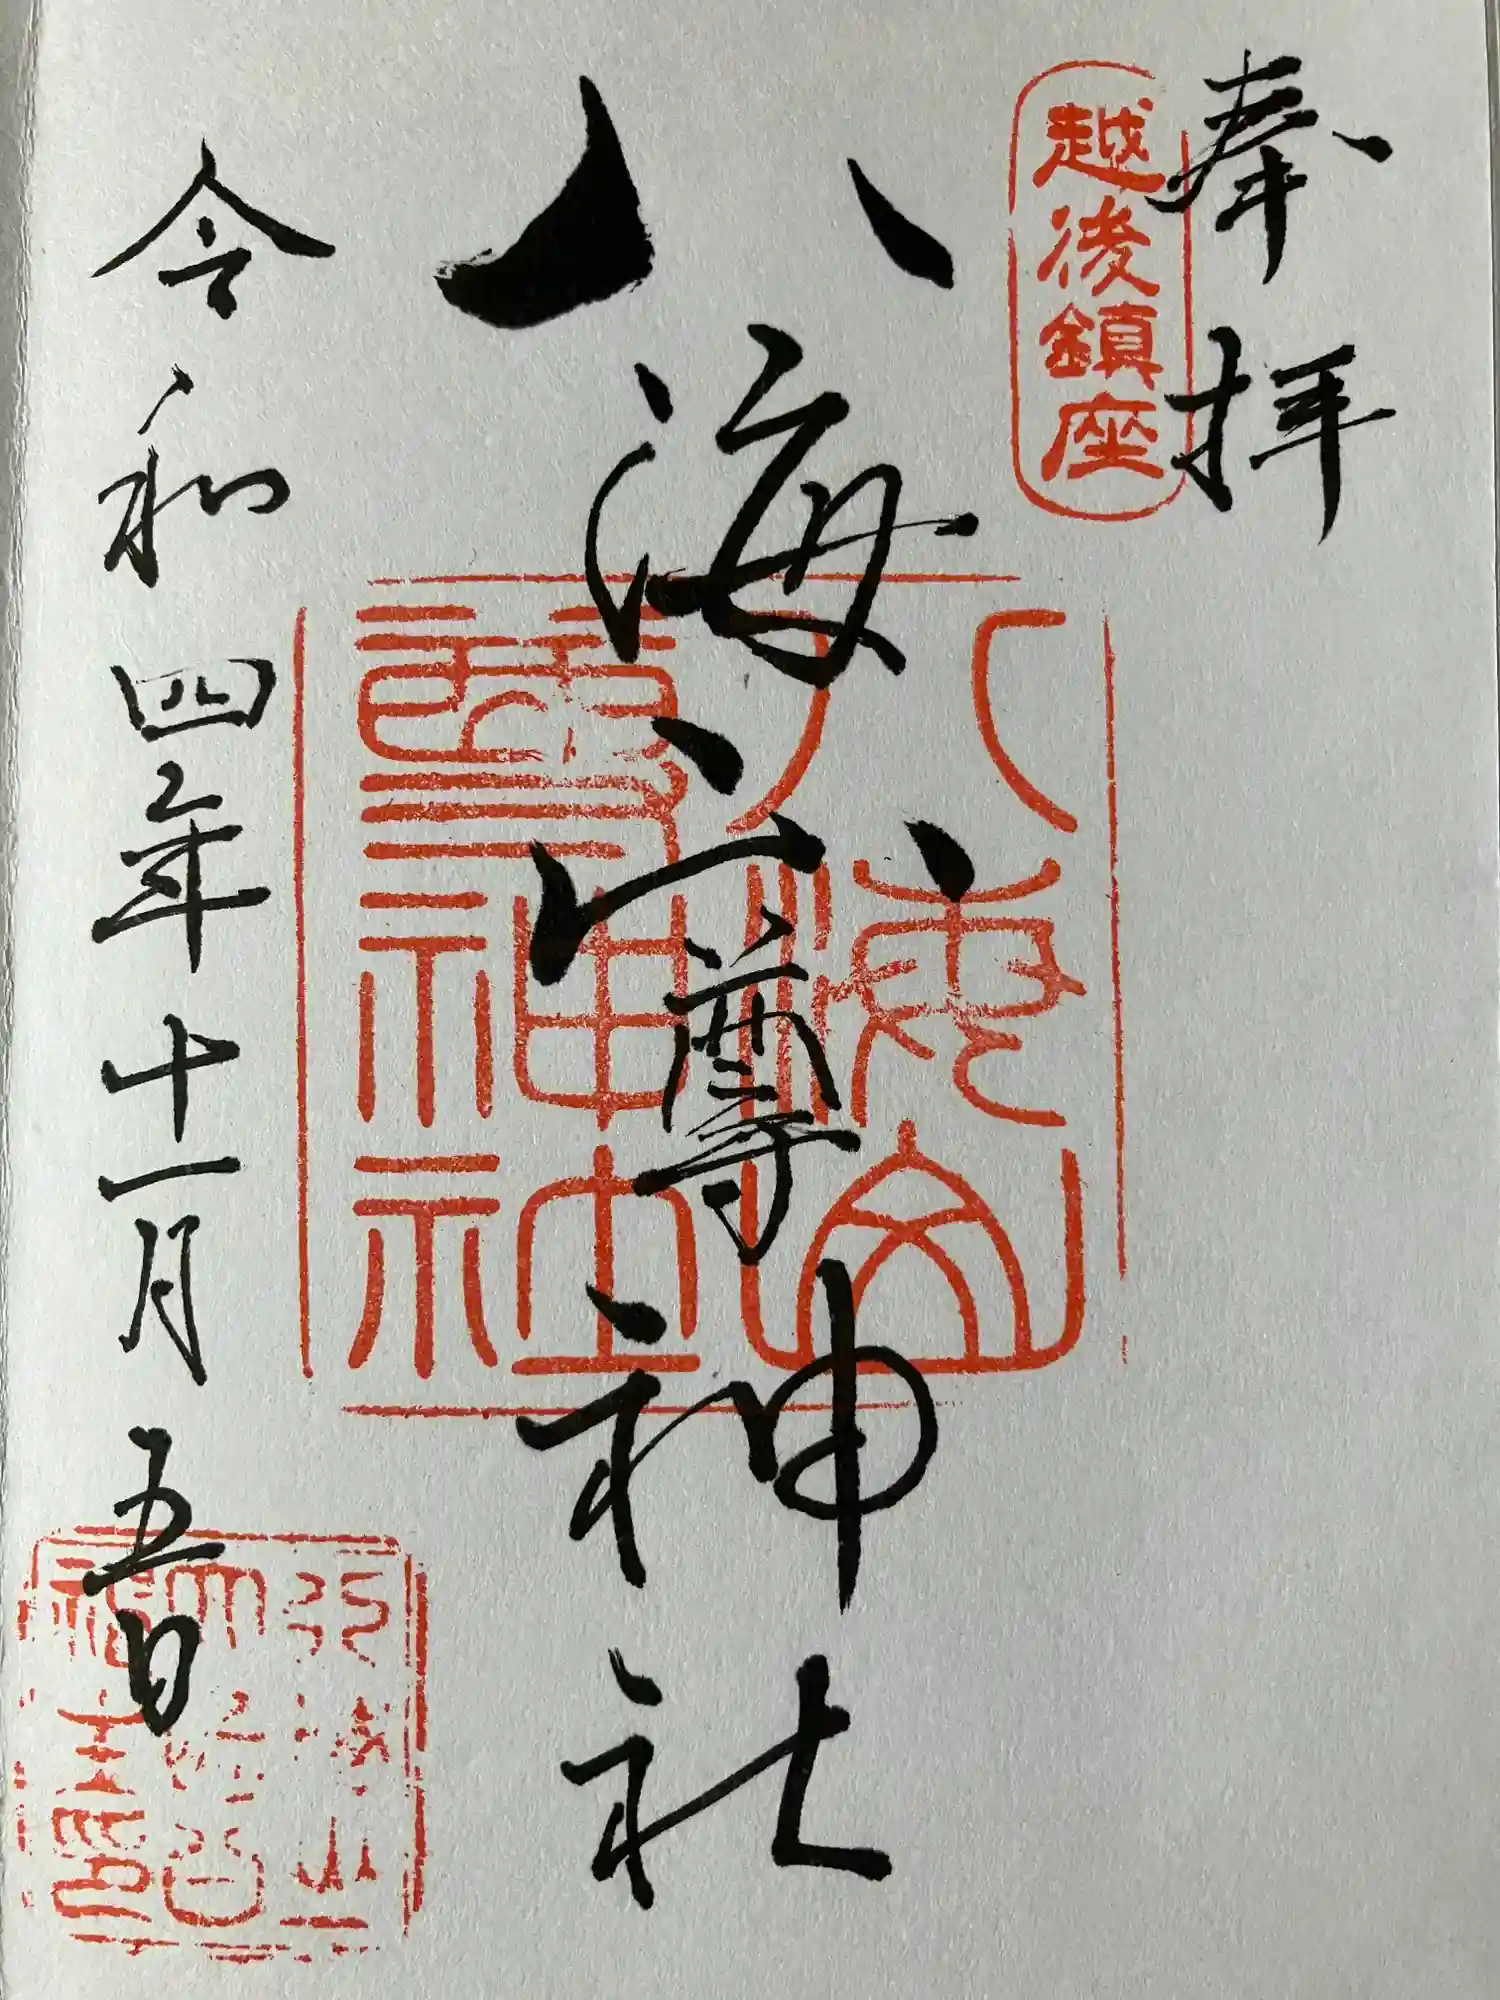 奉拝
越後鎮座
八海山尊神社
八海山
尊神社
令和四年十一月五日